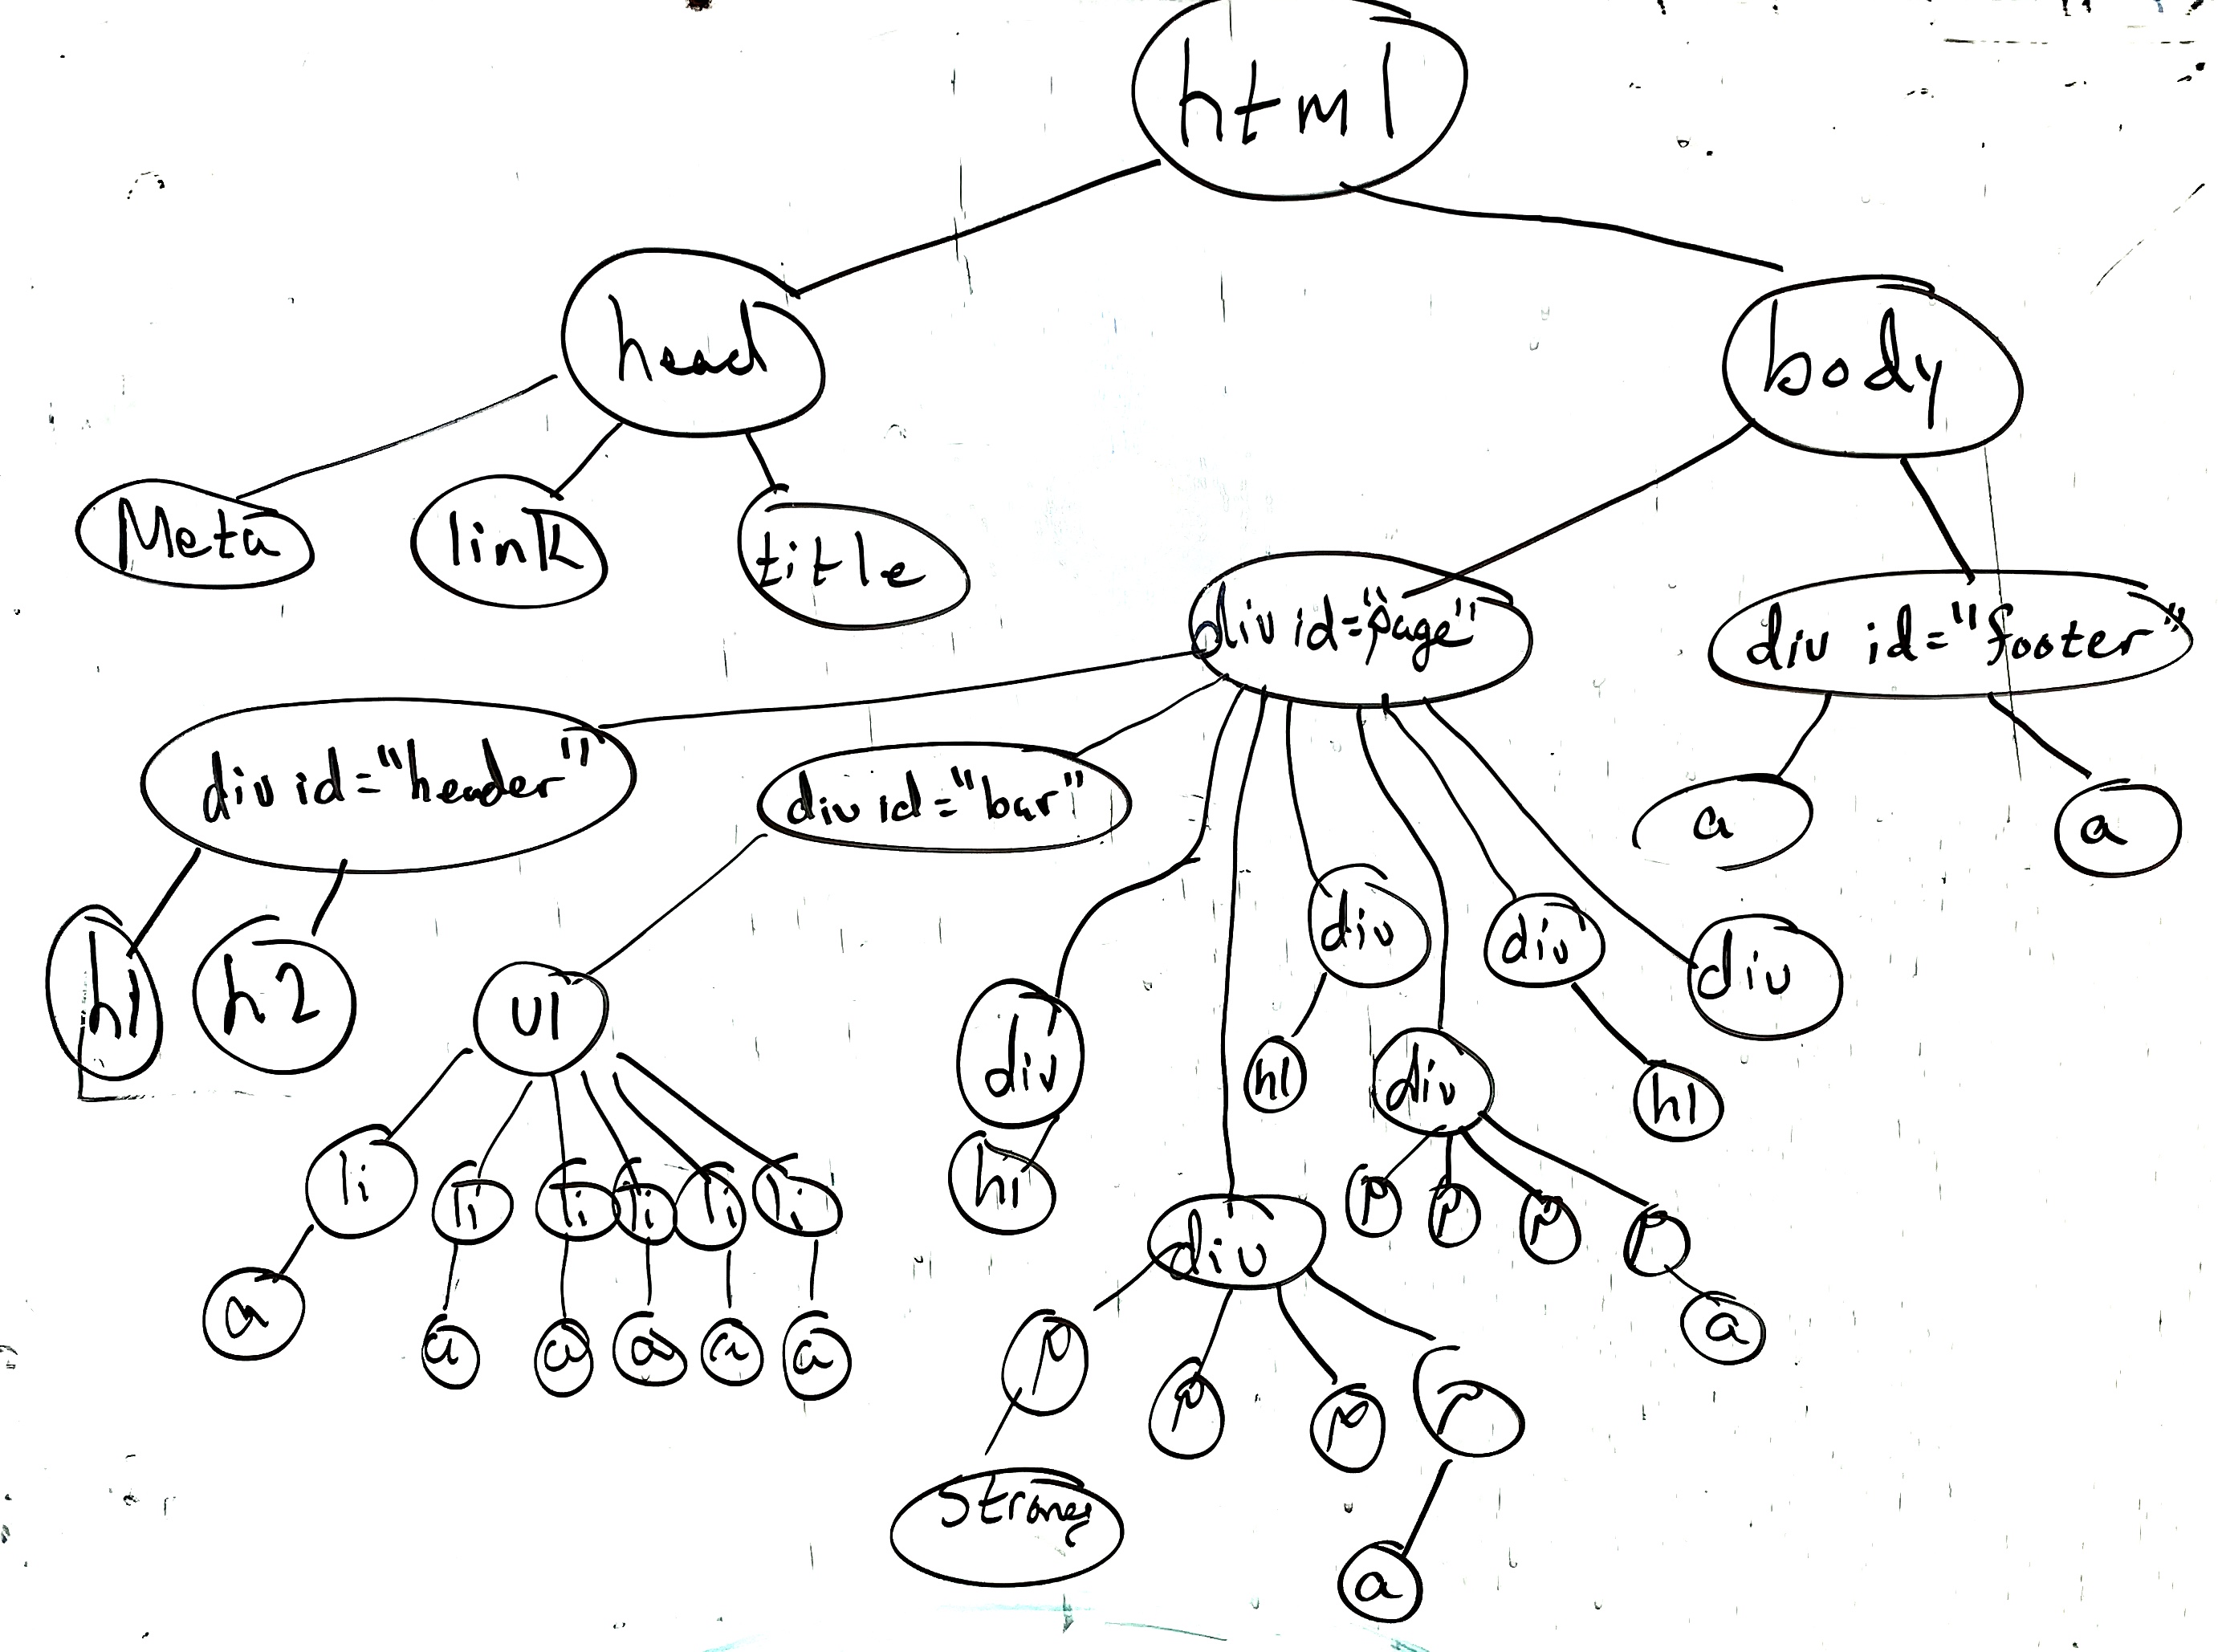 html
head
body
Meta
link
title
div id="page"
div id="footer"
div id="header"
div id="bar"
a
a
h1
h2
ul
div
div
div
div
div
h1
div
h1
h1
li
li
li
li
li
li
p
p
p
p
div
a
a
a
a
a
a
a
p
p
p
p
strong
a